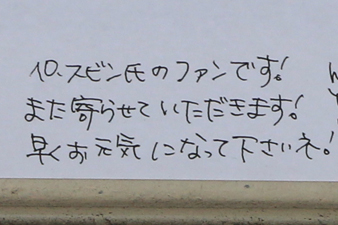 10.スビン氏のファンです!
また寄らせていただきます!
早くお元気になって下さいネ!